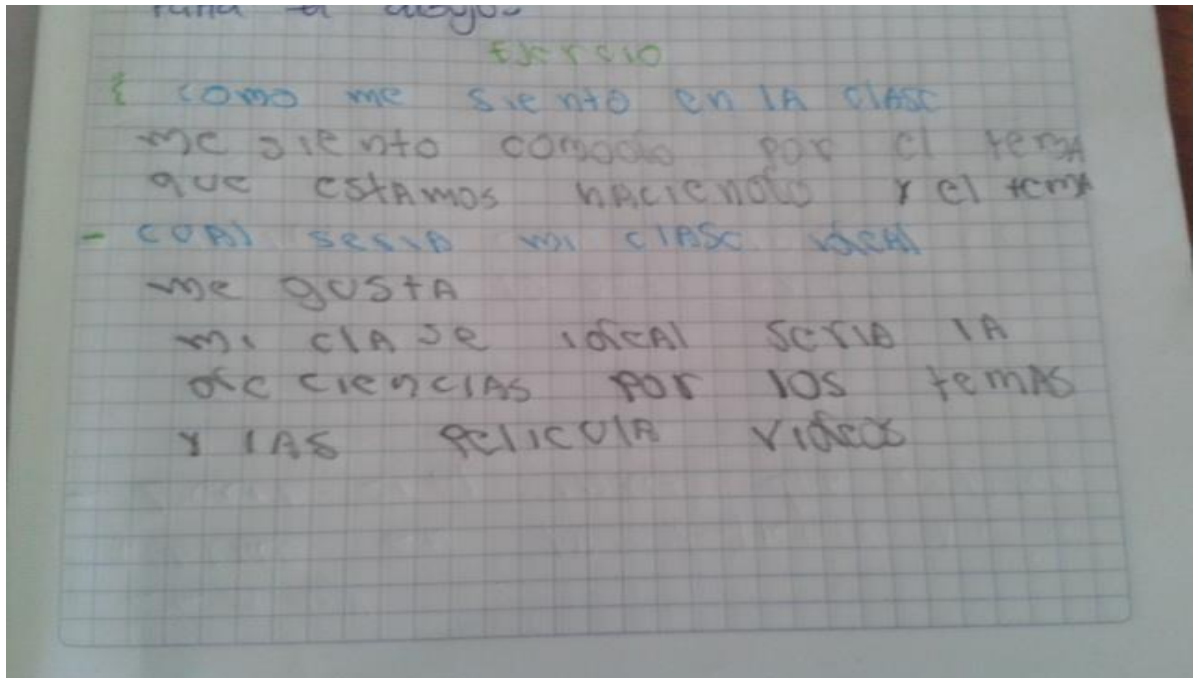 Ejercio
como me siento en la clase
me siento comodo por el tema
que estamos haciendo y el tema
- cual seria mi clase ideal
me gusta
mi clase ideal seria la
de ciencias por los temas
y las pelicula videos